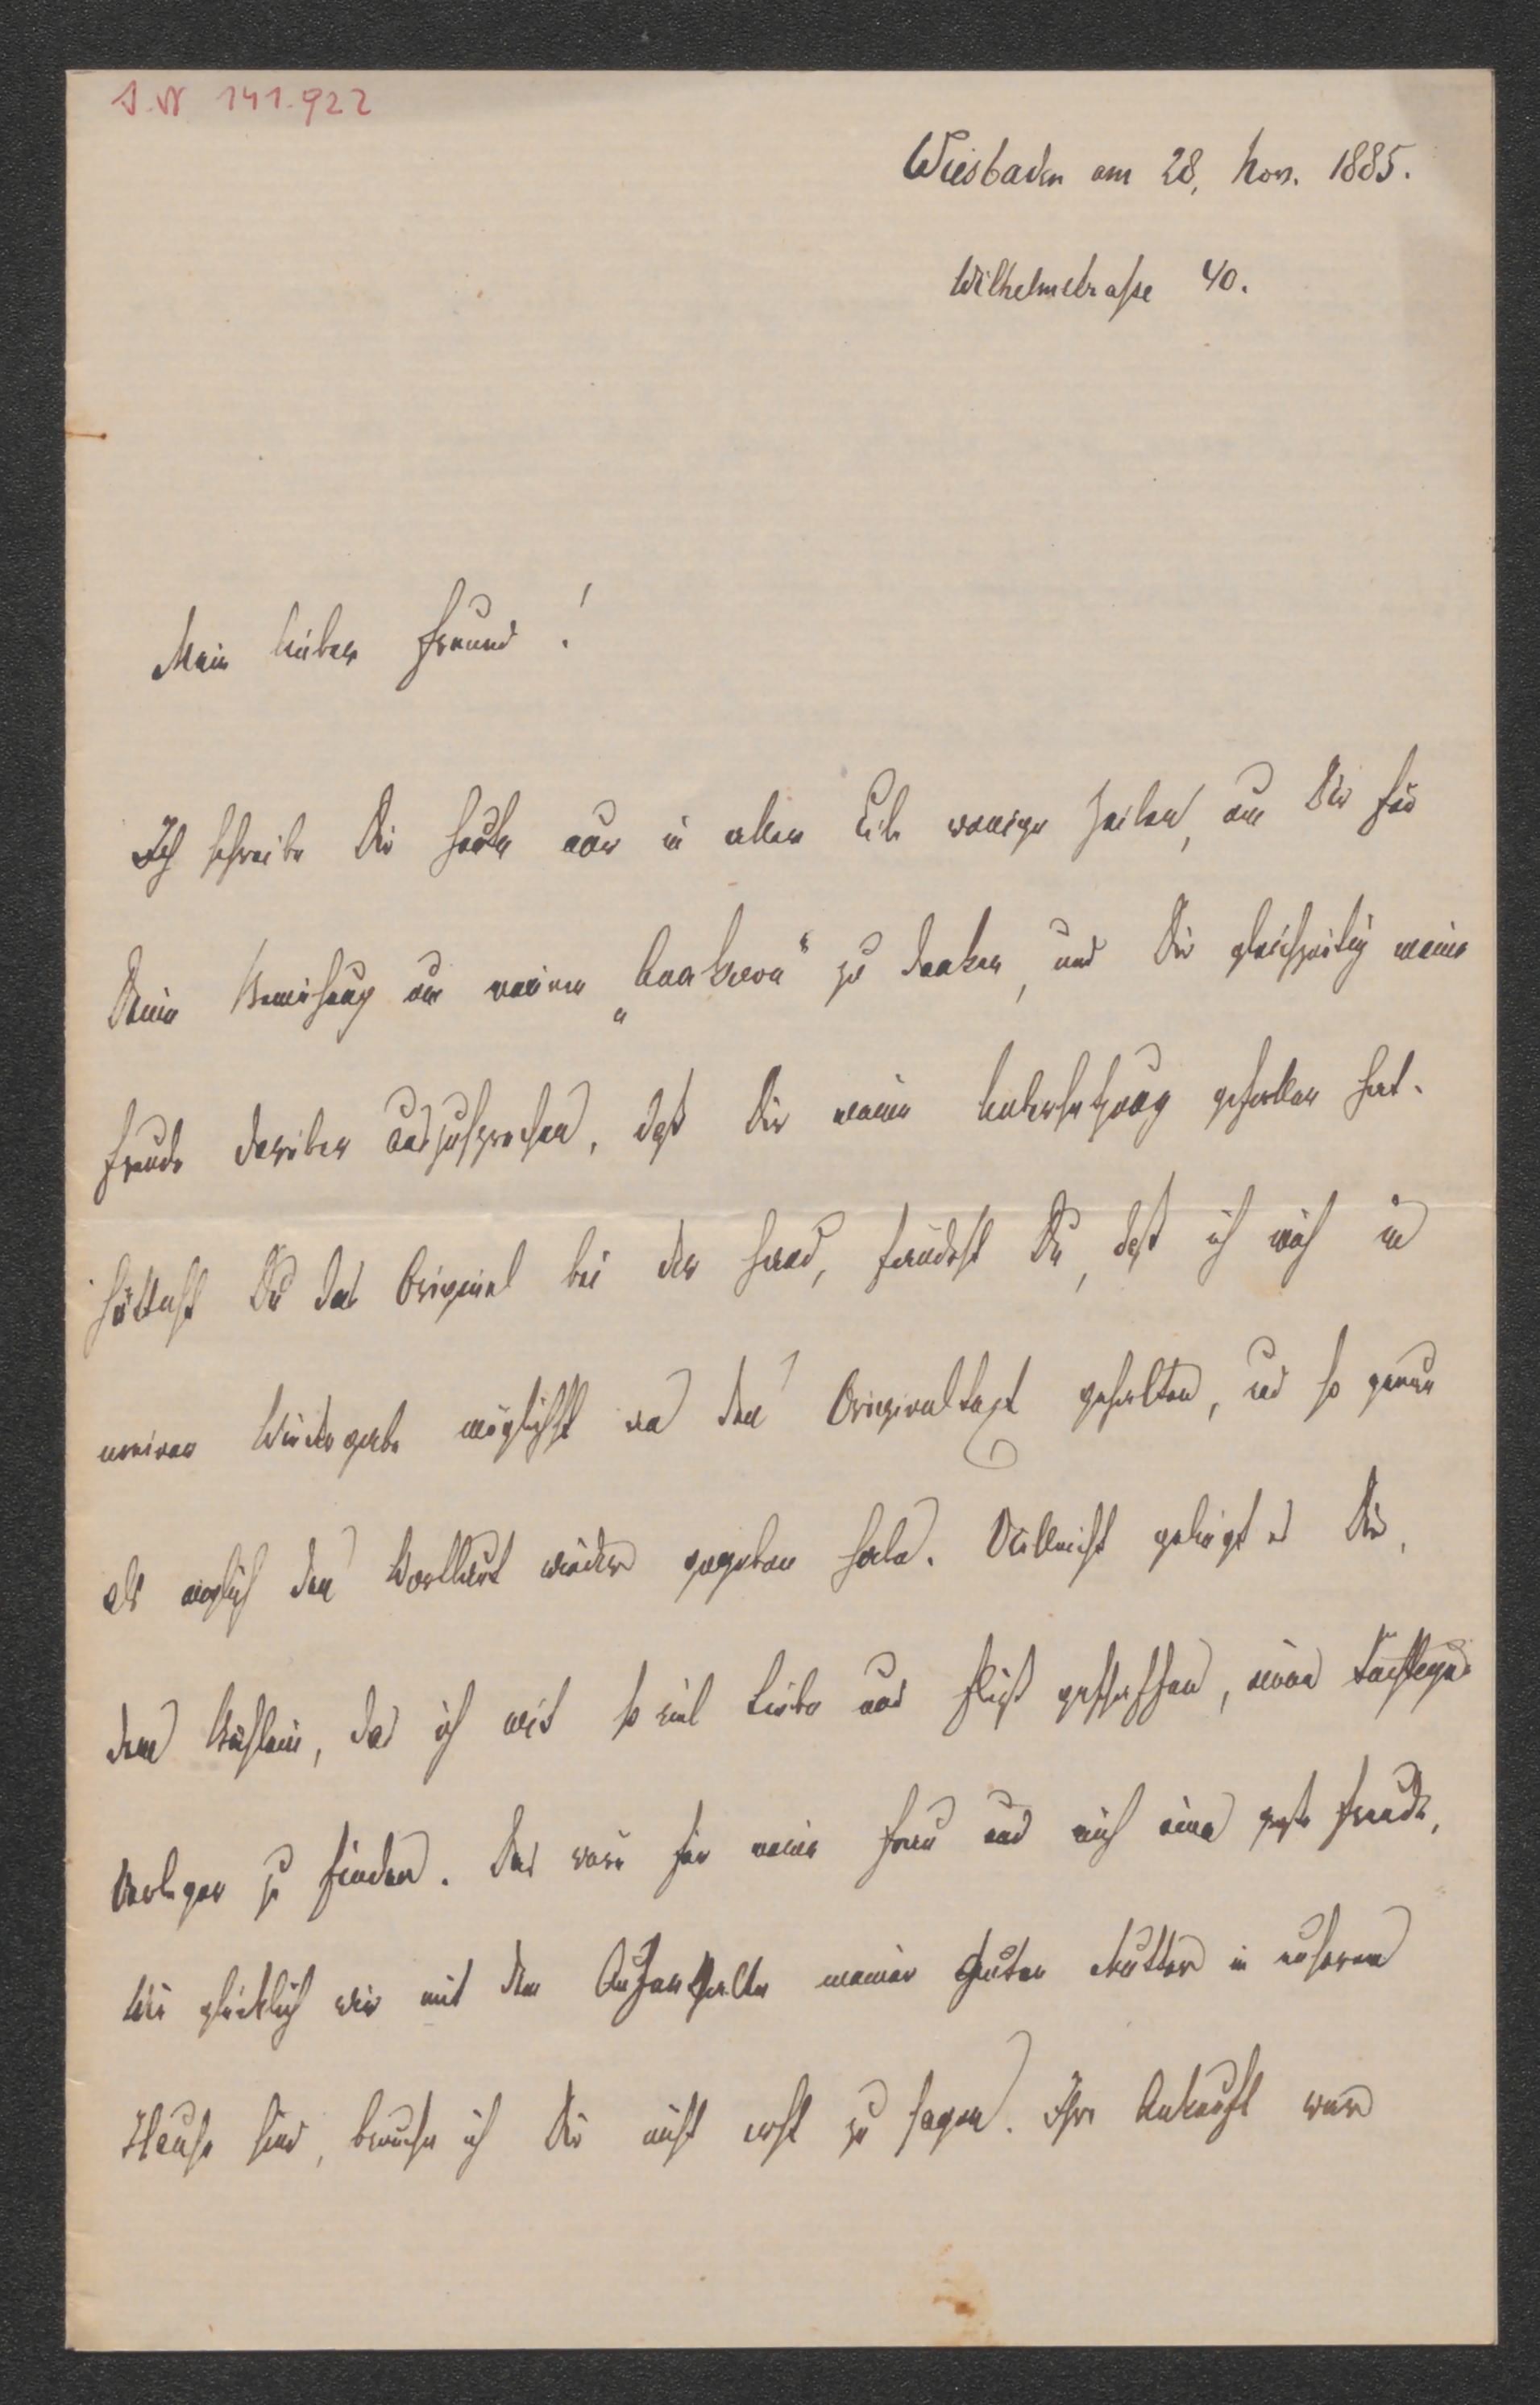 I.N 141.922
Wiesbaden am 28. Nov. 1885.
Wilhelmstraße 40.
Mein lieber Freund!
Ich schreibe Dir heute nur in aller Eile wenige Zeilen, um Dir für
Deine Bemühung um meinen „ “ zu danken, und Dir gleichzeitig meine
Freude darüber auszusprechen, daß Dir meine Uebersetzung gefallen hat.
Hättest Du das Original bei der Hand, fändest Du, daß ich mich in
meiner Wiedergabe möglichst an den Originaltext gehalten, und so genau
als möglich den Wortlaut wieder gegeben habe. Vielleicht gelingt es Dir,
dem Büchlein, das ich mit so viel Liebe und Fleiß geschaffen, einen
Verleger zu finden. Das wäre für meine Frau und mich eine große Freude.
Wie glücklich wir mit dem Aufenthalte meiner guten Mutter in unserem
Hause sind, brauche ich Dir nicht erst zu sagen. Ihre Ankunft war